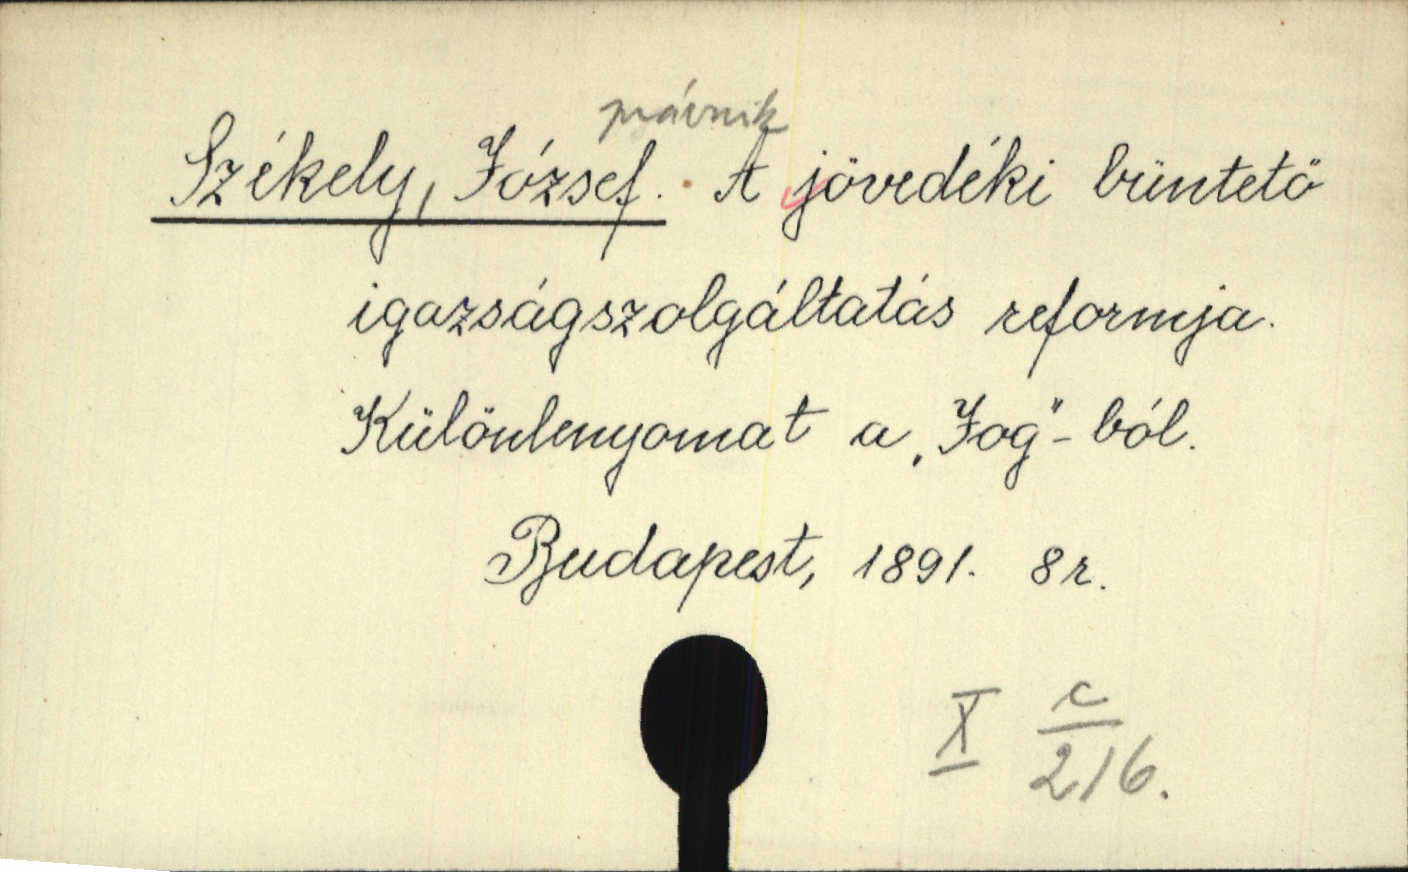 právnik
Székely, József. A jövedéki büntetö
igazságszolgáltatás reformja.
Különlenyomat a „Jog"-ból.
Budapest, 1891. 8r.
X c/216.